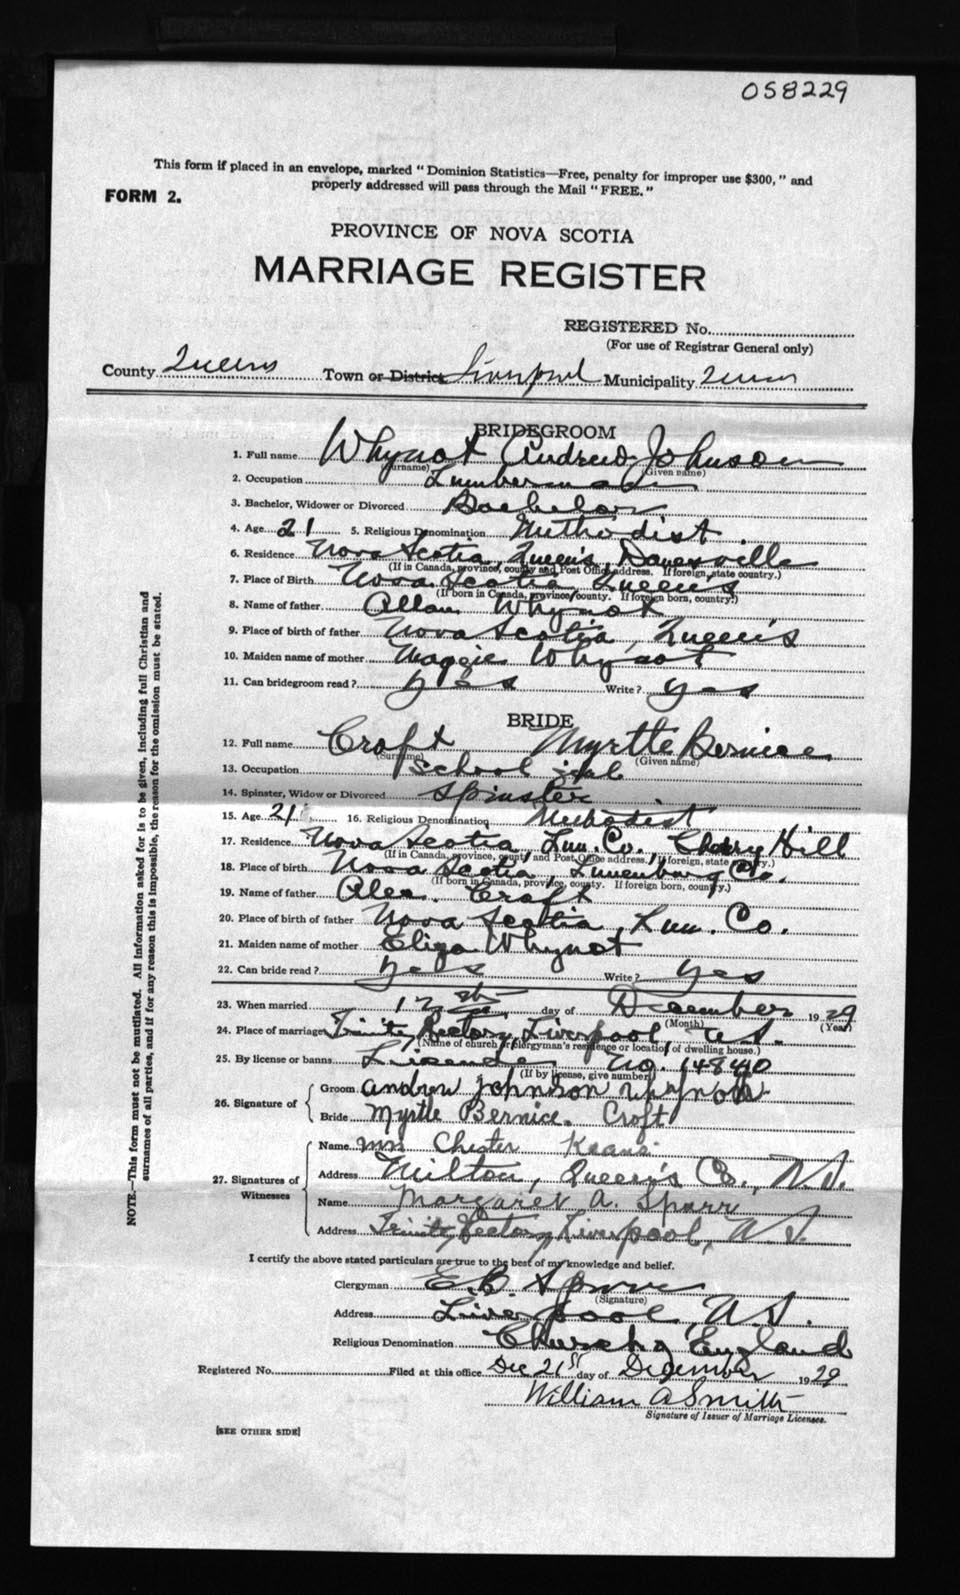 058229
This form if placed in an envelope, marked "Dominion Statistics—Free, penalty for improper use $300," and
properly addressed will pass through the Mail "FREE."
FORM 2.
PROVINCE OF NOVA SCOTIA
MARRIAGE REGISTER
REGISTERED No.
(For use of Registrar General only)
County Queens Town or District Liverpool Municipality Queens
BRIDEGROOM
1. Full name Whynot Andrew Johnson
(Surname) (Given name)
2. Occupation Lumberman
3. Bachelor, Widower or Divorced Bachelor
4. Age 21 5. Religious Denomination Methodist
6. Residence Nova Scotia, Queen's, Danesville
(If in Canada, province, county and Post Office address. If foreign, state country.)
7. Place of Birth Nova Scotia, Queens
(If born in Canada, province, county. If foreign born, country.)
8. Name of father Allan Whynot
9. Place of birth of father Nova Scotia, Queen's
10. Maiden name of mother Maggie Whynot
11. Can bridegroom read? yes Write? yes
BRIDE
12. Full name Croft Myrtle Bernice
(Surname) (Given name)
13. Occupation School
14. Spinster, Widow or Divorced Spinster
15. Age 21 16. Religious Denomination Methodist
17. Residence Nova Scotia, Lun. Co., Cherry Hill
(If in Canada, province, county and Post Office address. If foreign, state country.)
18. Place of birth Nova Scotia, Lunenburg Co.
(If born in Canada, province, county. If foreign born, country.)
19. Name of father Alex. Croft
20. Place of birth of father Nova Scotia, Lun. Co.
21. Maiden name of mother Eliza Whynot
22. Can bride read? yes Write? yes
23. When married 12th day of December 1929
(Month) (Year)
24. Place of marriage Trinity Rectory, Liverpool, N.S.
(Name of church or clergyman's residence or location of dwelling house.)
25. By license or banns License No. 148440
(If by license, give number)
26. Signature of Groom Andrew Johnson Whynott
Bride Myrtle Bernice. Croft
27. Signatures of Witnesses
Name Mrs Chester Keans
Address Milton, Queen's Co., N.S.
Name Margaret A. Spurr
Address Trinity Rectory, Liverpool, N.S.
I certify the above stated particulars are true to the best of my knowledge and belief.
Clergyman E.B. Spurr
(Signature)
Address Liverpool, N.S.
Religious Denomination Church of England
Registered No. Filed at this office Dec 21st day of December 1929
William A Smith
Signature of Issuer of Marriage Licenses.
[SEE OTHER SIDE]
NOTE.—This form must not be mutilated. All information asked for is to be given, including full Christian and
surnames of all parties, and if for any reason this is impossible, the reason for the omission must be stated.